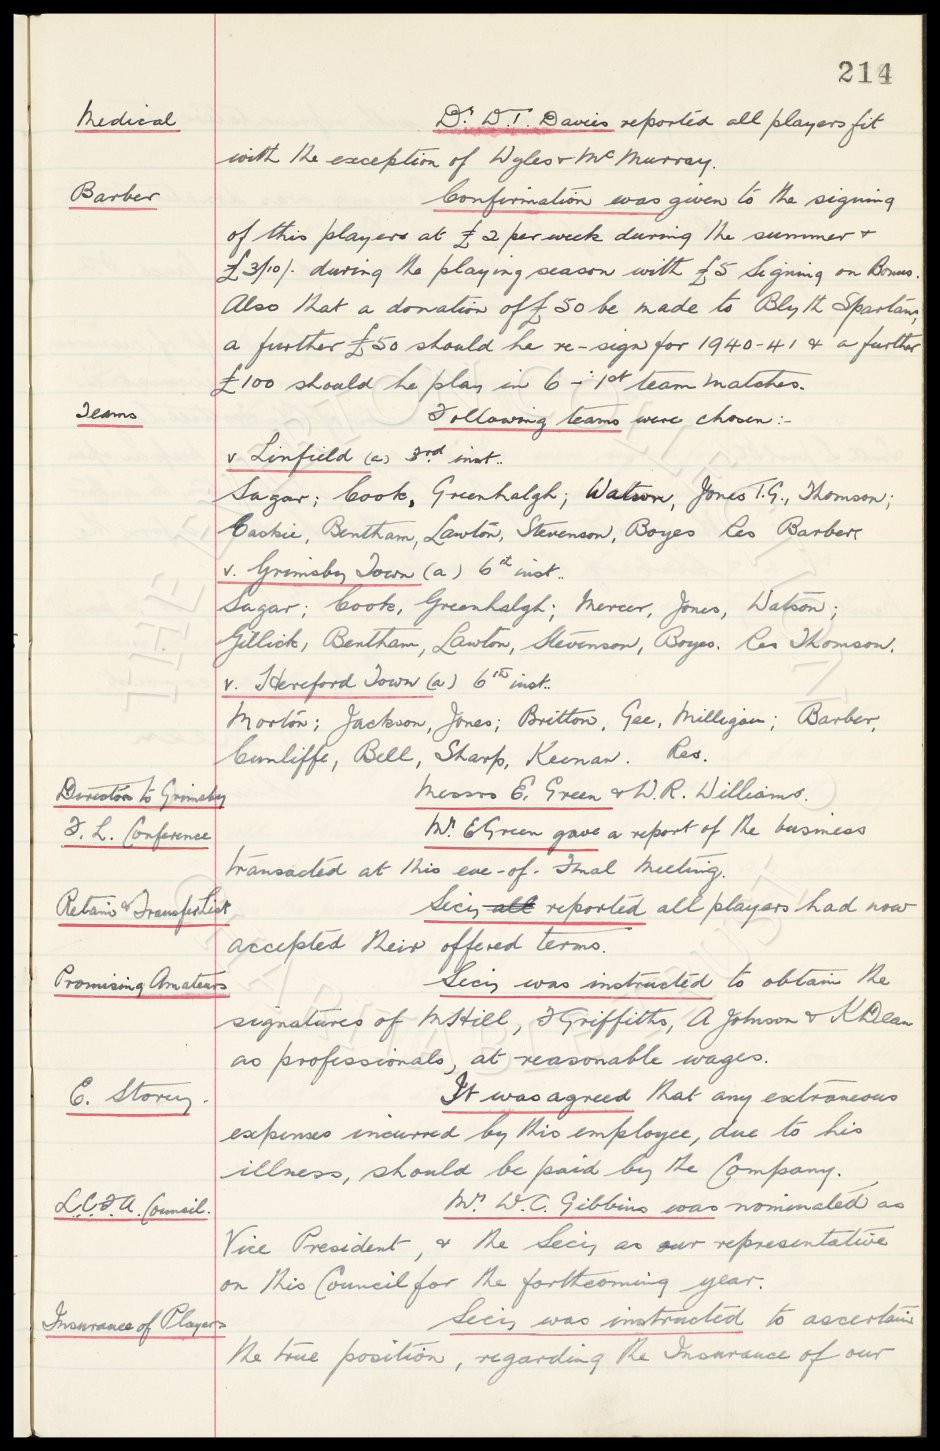 214
Medical Dr. W.T. Davies reported all players fit
with the exception of Wyles & McMurray.
Barber Confirmation was given to the signing
of this players at £2 per week during the summer &
£3/10/- during the playing season with £5 Signing on Bonus.
Also that a donation of £50 be made to Blyth Spartans,
a further £50 should he re-sign for 1940-41 & a further
£100 should he play in 6 - 1st team matches.
Teams Following teams were chosen:-
v Linfield (a) 3rd inst..
Sagar; Cook, Greenhalgh; Watson, Jones T.G., Thomson;
Caskie, Bentham, Lawton, Stevenson, Boyes Res Barber
v. Grimsby Town (a) 6th inst..
Sagar; Cook, Greenhalgh; Mercer, Jones, Watson;
Gillick, Bentham, Lawton, Stevenson, Boyes. Res Thomson.
v. Hereford Town (a) 6th inst..
Morton; Jackson, Jones; Britton, Gee, Milligan; Barber,
Cunliffe, Bell, Sharp, Keenan. Res.
Directors to Grimsby Messrs E. Green & W.R. Williams.
F. L. Conference Mr. E Green gave a report of the business
transacted at this eve-of-Final Meeting.
Retain & Transfer List Secy all reported all players had now
accepted their offered terms.
Promising Amateurs Secy was instructed to obtain the
signatures of M Hill, F Griffiths, A Johnson & K Dean
as professionals, at reasonable wages.
E. Storey. It was agreed that any extraneous
expenses incurred by this employee, due to his
illness, should be paid by the Company.
L.C.F.A. Council. Mr. W.C. Gibbins was nominated as
Vice President, & the Secy as our representative
on this Council for the forthcoming year.
Insurance of Players Secy was instructed to ascertain
the true position, regarding the Insurance of our